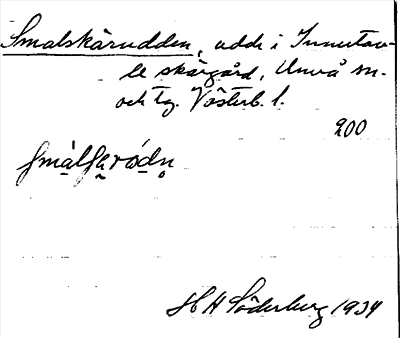 Smalskärudden, udde i Innertav-
le skärgård, Umeå sn.
och tg. Västerb. l.
200
H H Söderberg 1934